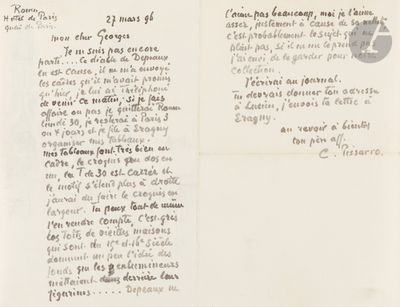 Rouen
Hotel de Paris
quai de Paris.
27 mars 96
mon cher Georges
Je ne suis pas encore
parti.... Ce diable de Depeaux
en est cause, il ne m'a envoyé
les cadres qu'il m'avait promis
qu'hier, je lui ai téléphoné
de venir ce matin; si je fais
affaire ou pas je quitterai Rouen
lundi 30, je resterai à Paris 3
ou 4 jours et je file à Eragny
organiser mes tableaux.
mes tableaux font très bien en
cadre, le croquis dos en
un, la T de 30 est carrée et
le motif s'étend plus à droite
j'aurai du faire le croquis en
largeur. Tu peux tout de même
t'en rendre compte, c'est gris
les toits de vieilles maisons
qui sont du 15e et 16e Siècle
donnent un peu l'idée des
fonds que les enlumineurs
mettaient derrière leurs
figurines ..... Depeaux ne
l'aime pas beaucoup, moi je l'aime
assez, justement à cause de
c'est probablement le sujet qui ne
plait pas, si il ne le prend pas
j'ai envie de le garder pour notre
collection.
J'écrirai au journal.
Tu devrais donner ton adresse
à Lucien, j'envois ta lettre à
Eragny.
au revoir à bientôt
ton père aff.
C. Pissarro